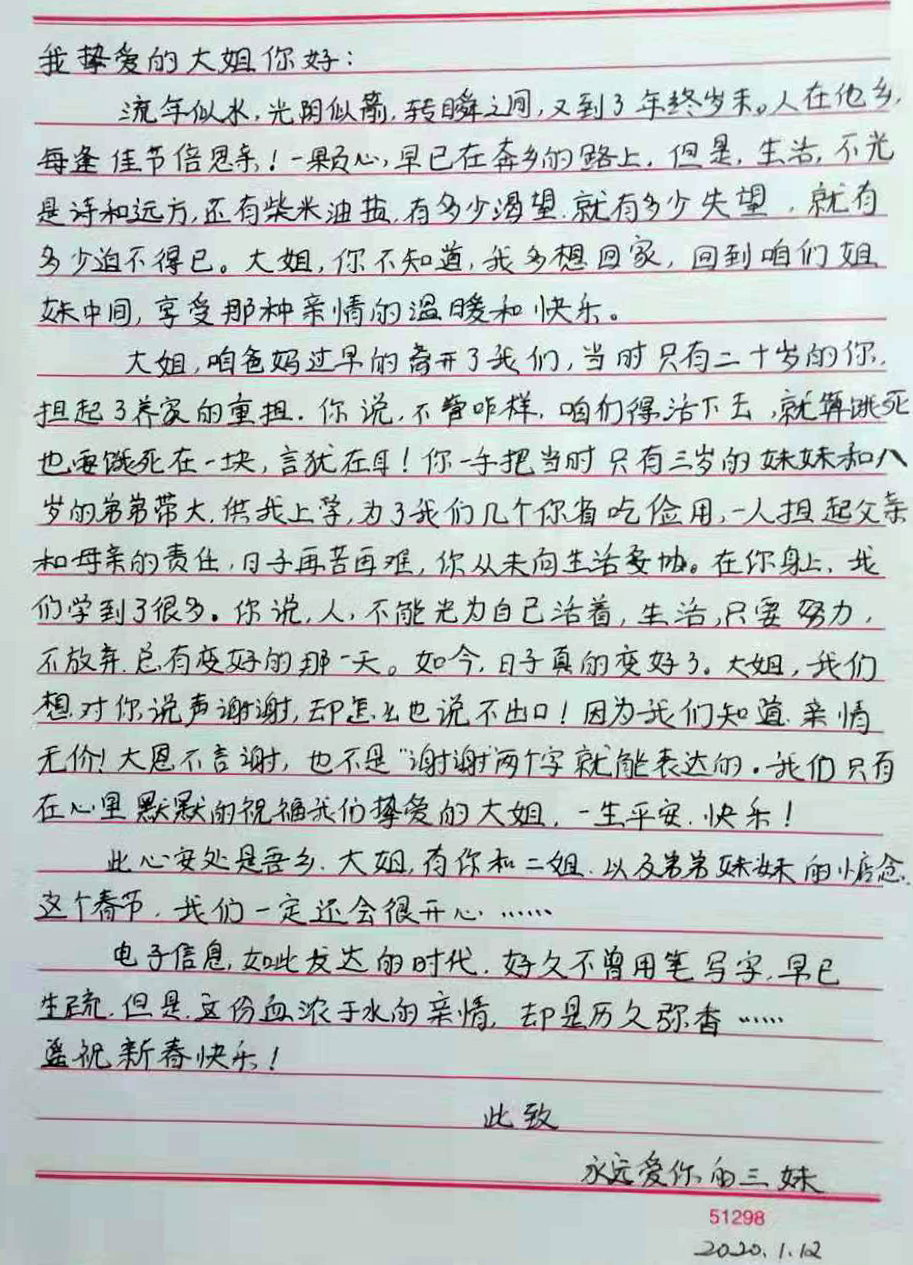 我挚爱的大姐你好：
流年似水，光阴似箭，转瞬之间，又到了年终岁末。人在他乡，
每逢佳节倍思亲！一颗心，早已在奔乡的路上，但是，生活，不光
是诗和远方，还有柴米油盐，有多少渴望，就有多少失望，就有
多少迫不得已。大姐，你不知道，我多想回家，回到咱们姐
妹中间，享受那种亲情的温暖和快乐。
大姐，咱爸妈过早的离开了我们，当时只有二十岁的你，
担起了养家的重担。你说，不管咋样，咱们得活下去，就算饿死
也要饿死在一块，言犹在耳！你一手把当时只有三岁的妹妹和八
岁的弟弟带大，供我上学，为了我们几个你省吃俭用，一人担起父亲
和母亲的责任，日子再苦再难，你从未向生活妥协。在你身上，我
们学到了很多。你说，人，不能光为自己活着，生活，只要努力，
不放弃，总有变好的那一天。如今，日子真的变好了。大姐，我们
想对你说声谢谢，却怎么也说不出口！因为我们知道，亲情
无价！大恩不言谢，也不是“谢谢”两个字就能表达的。我们只有
在心里默默的祝福我们挚爱的大姐，一生平安，快乐！
此心安处是吾乡，大姐，有你和二姐，以及弟弟妹妹的惦念，
这个春节，我们一定还会很开心……
电子信息，如此发达的时代，好久不曾用笔写字，早已
生疏，但是，这份血浓于水的亲情，却是历久弥香……
遥祝新春快乐！
此致
永远爱你的三妹
51298
2020.1.12